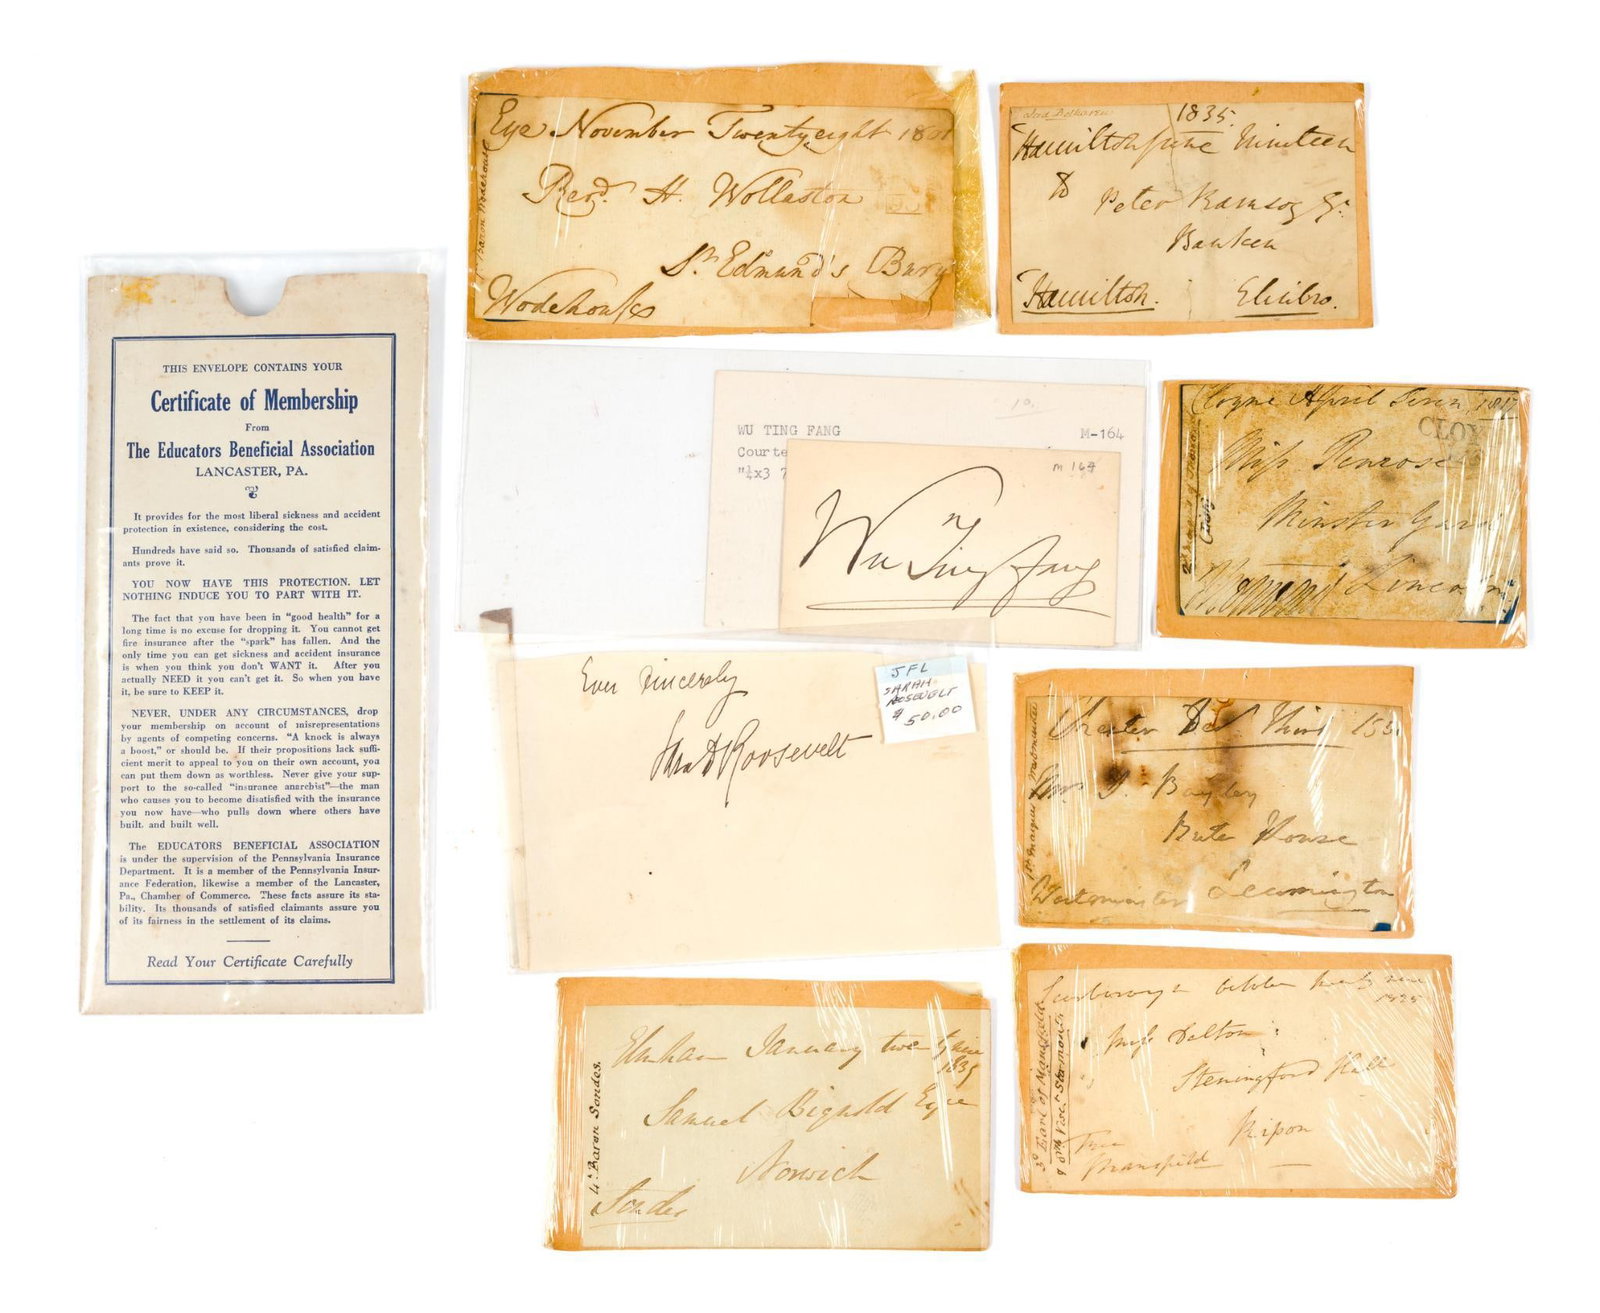 THIS ENVELOPE CONTAINS YOUR
Certificate of Membership
From
The Educators Beneficial Association
LANCASTER, PA.
It provides for the most liberal sickness and accident
protection in existence, considering the cost.
Hundreds have said so. Thousands of satisfied claim-
ants prove it.
YOU NOW HAVE THIS PROTECTION. LET
NOTHING INDUCE YOU TO PART WITH IT.
The fact that you have been in "good health" for a
long time is no excuse for dropping it. You cannot get
fire insurance after the "spark" has fallen. And the
only time you can get sickness and accident insurance
is when you think you don't WANT it. After you
actually NEED it you can't get it. So when you have
it, be sure to KEEP it.
NEVER, UNDER ANY CIRCUMSTANCES, drop
your membership on account of misrepresentations
by agents of competing concerns. "A knock is always
a boost," or should be. If their propositions lack suffi-
cient merit to appeal to you on their own account, you
can put them down as worthless. Never give your sup-
port to the so-called "insurance anarchist"—the man
who causes you to become disatisfied with the insurance
you now have—who pulls down where others have
built, and built well.
The EDUCATORS BENEFICIAL ASSOCIATION
is under the supervision of the Pennsylvania Insurance
Department. It is a member of the Pennsylvania Insur-
ance Federation, likewise a member of the Lancaster,
Pa., Chamber of Commerce. These facts assure its sta-
bility. Its thousands of satisfied claimants assure you
of its fairness in the settlement of its claims.
Read Your Certificate Carefully
Eye November Twentyeight 1801
Revd. H. Wollaston
St. Edmund's Bury
Wodehouse
Baron Wodehouse
1835.
Hamilton June Nineteen
To
Peter Ramsay
Hamilton.
WU TING FANG
M-164
Courte
"¼x3 7
m 164
Wu Ting Fang
Cloyne April Seven 1817
CLOY
Miss Penrose
Minster Yard
Lincoln
Ever sincerely
Sara D Roosevelt
JFL
SARAH
ROSEVELT
$50.00
Chester Third
Bayley
Bute House
Westminster Leamington
1st Marquis Westminster
Elmham January twenty nine
1839
Samuel Bignold Esqre
Norwich
Sondes
4th Baron Sondes.
Scarborough October twenty nine
1835
Miss Dalton
Steningford Hall
Ripon
Free
Mansfield
3d Earl of Mansfield
& 8th Visct Stormont